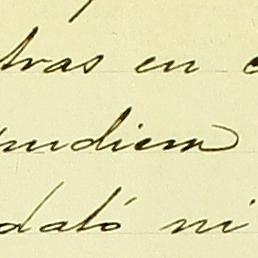 tras en
pudiera
dató ni